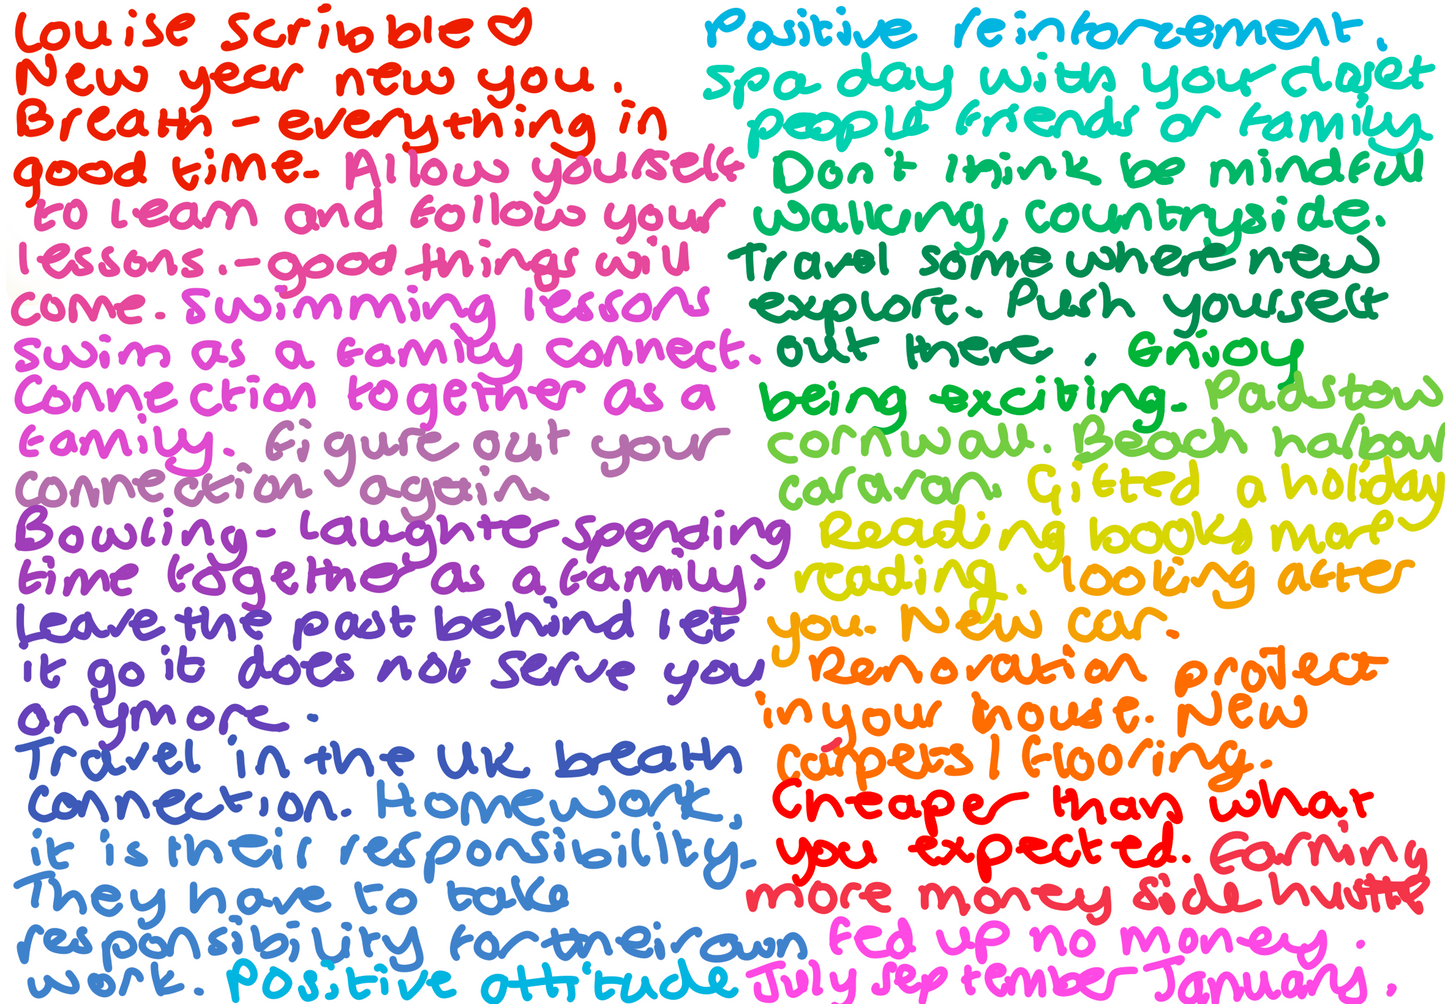 Louise Scribble ♡
New year new you.
Breath - everything in
good time. Allow yourself
to learn and follow your
lessons. - good things will
come. Swimming lessons
swim as a family connect.
Connection together as a
family. Figure out your
connection again.
Bowling - Laughter spending
time together as a family.
Leave the past behind let
it go it does not serve you
anymore.
Travel in the UK breath
connection. Homework,
it is their responsibility.
They have to take
responsibility for their own
work. Positive attitude
Positive reinforcement.
Spa day with your closet
people friends or family.
Don't think be mindful
walking, countryside.
Travel some where new
explore. Push yourself
out there. Enjoy
being exciting. Padstow
cornwall. Beach harbour
caravan. Gifted a holiday
Reading books more
reading. looking after
you. New car.
Renovation project
in your house. New
carpets / flooring.
Cheaper than what
you expected. Earning
more money side hustle
fed up no money.
July september January.